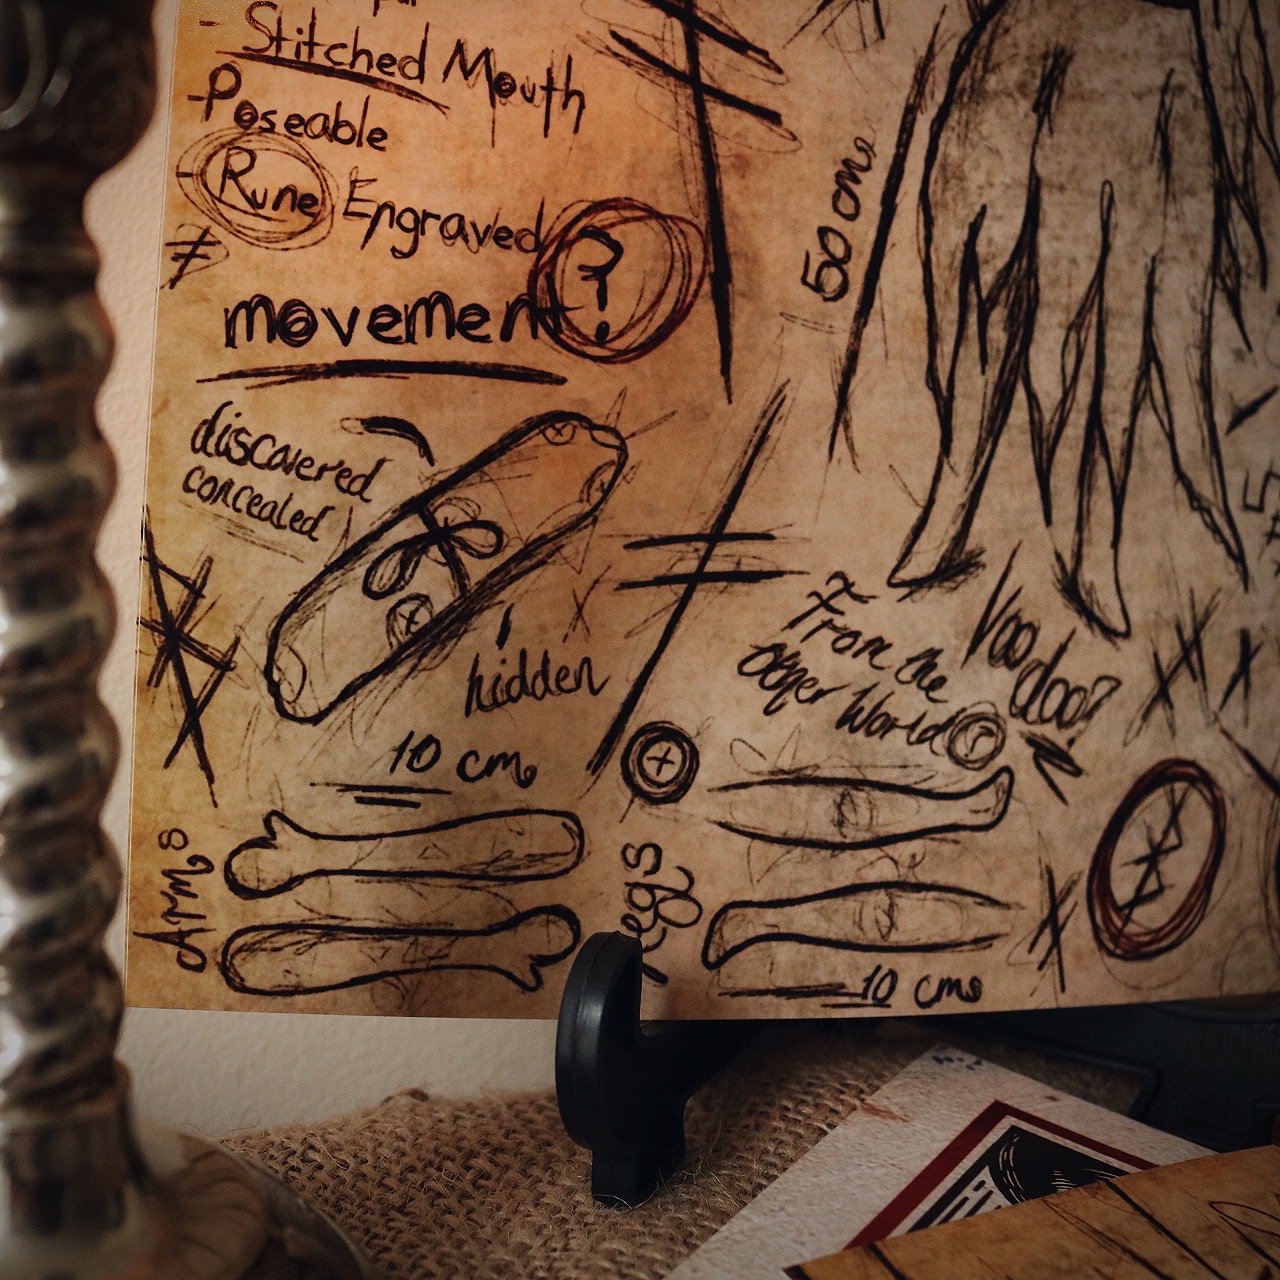 - Stitched Mouth
- Poseable
- Rune Engraved
≠ movement?
50 cms
discovered
concealed
hidden
From the
other World?
Voodoo?
10 cms
Arms
Legs
10 cms